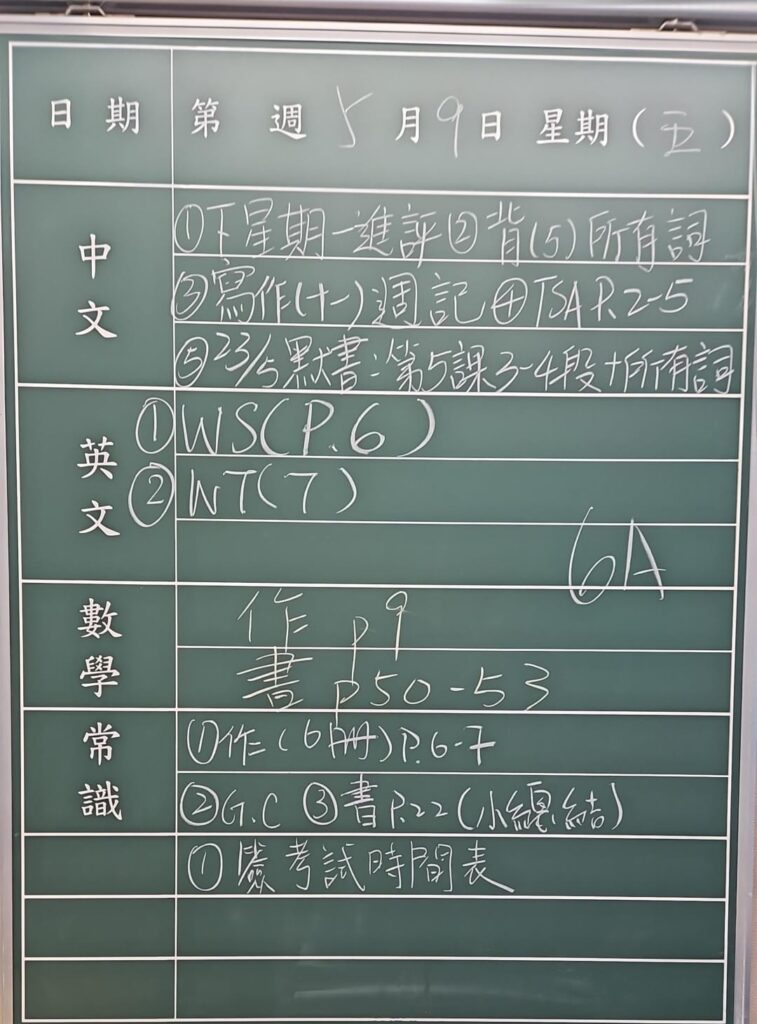 日期 第 週 5 月 9 日 星期 ( 五 )
中文 ①下星期一進評 ② 背(5)所有詞
③寫作(十一)週記 ④TSA P.2-5
⑤23/5默書：第5課3-4段+所有詞
英文 ① WS(P.6)
② WT(7)
6A
數學 作 p9
書 p50-53
常識 ①作(6冊)P.6-7
②G.C ③書P.22(小總結)
①考試時間表